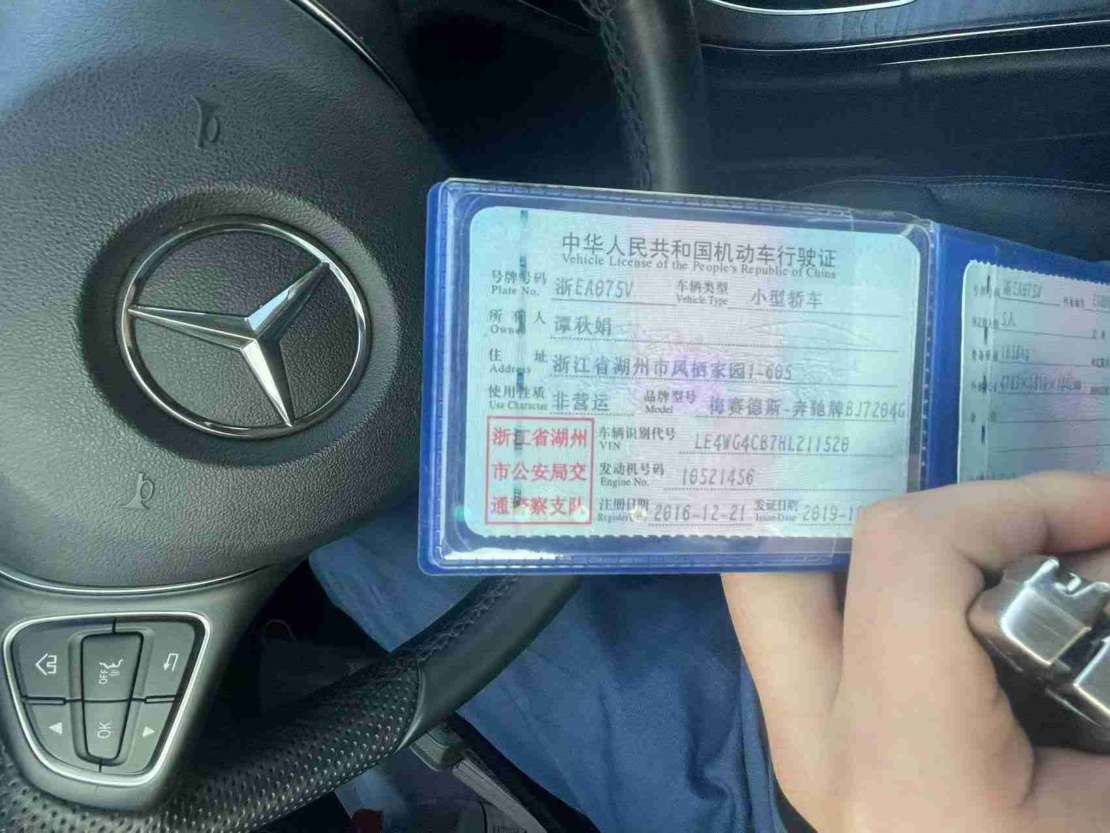 中华人民共和国机动车行驶证
Vehicle License of the People's Republic of China
号牌号码 浙EA075V 车辆类型 小型轿车
Plate No. Vehicle Type
所有人 谭秋娟
Owner
住址 浙江省湖州市凤栖家园1-605
Address
使用性质 非营运 品牌型号 梅赛德斯-奔驰牌BJ7204G
Use Character Model
浙江省湖州 车辆识别代号 LE4WG4CB7HL211520
VIN
市公安局交 发动机号码 10521456
Engine No.
通警察支队 注册日期 2016-12-21 发证日期 2019-1
Register Date Issue Date
浙EA075V
5人
OFF
OK